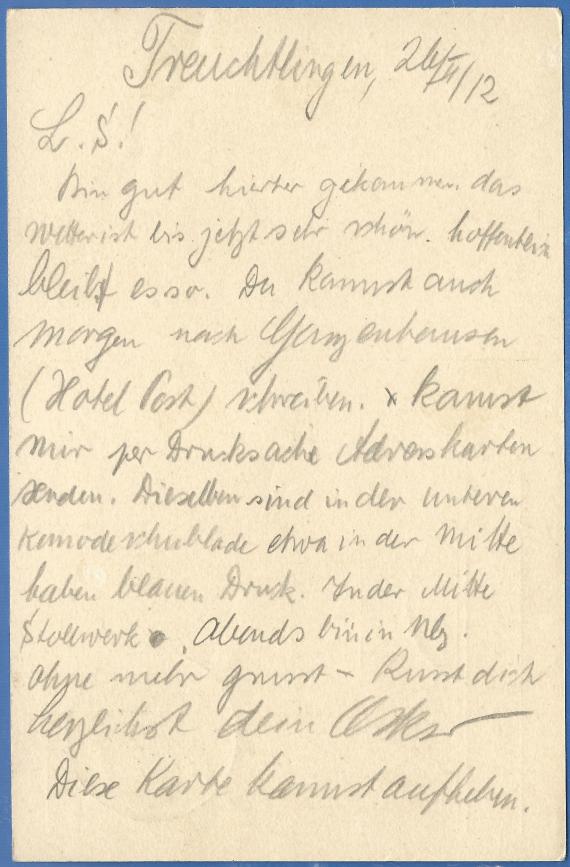 Treuchtlingen, 26/II/12
L. S!
Bin gut hierher gekommen. das
Wetter ist bis jetzt sehr schön. hoffentlich
bleibt es so. Du kannst auch
Morgen nach Gunzenhausen
(Hotel Post) schreiben. x kannst
mir per Drucksache Adresskarten
senden. Dieselben sind in der unteren
Komodeschublade etwa in der Mitte
haben blauen Druck. In der Mitte
Stollwerk. Abends bin in Nbg.
ohne mehr grüsst – Küsst dich
herzlichst dein Oskar
Diese Karte kannst aufheben.